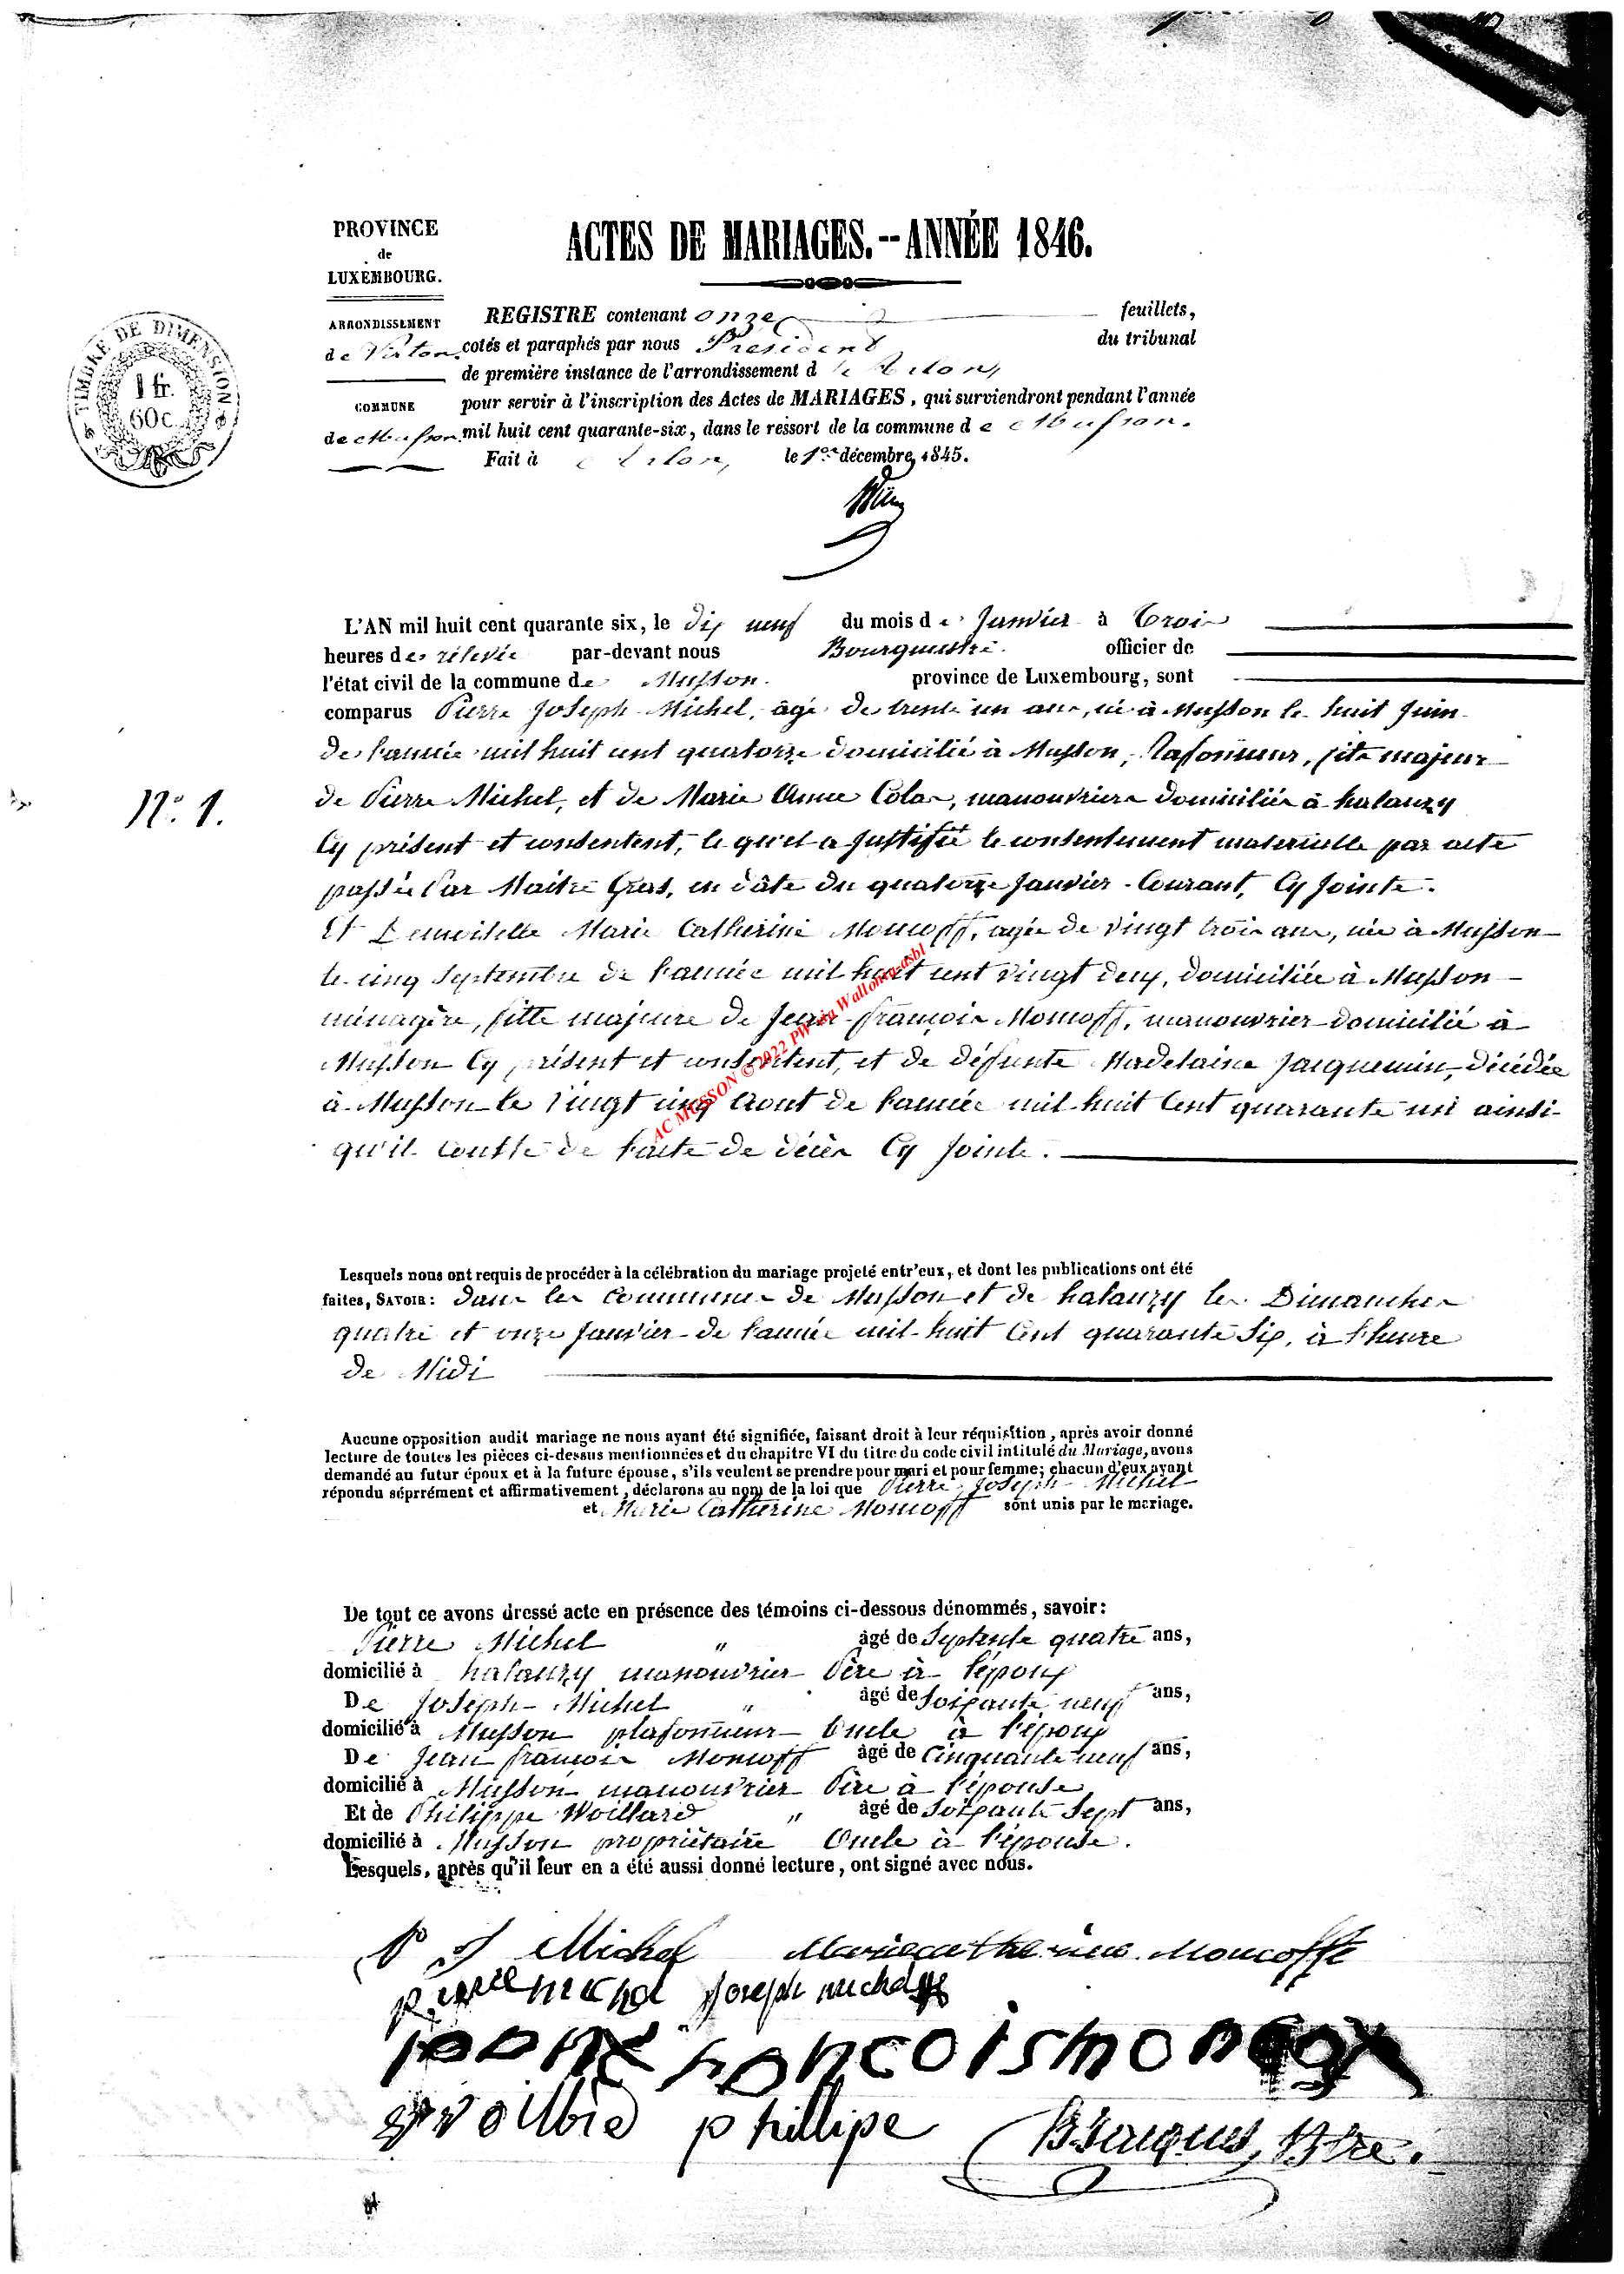 PROVINCE
de
LUXEMBOURG.
ARRONDISSEMENT
de Virton.
COMMUNE
de Musson.
TIMBRE DE DIMENSION
1 fr.
60 c.
ACTES DE MARIAGES.--ANNÉE 1846.
REGISTRE contenant onze feuillets,
cotés et paraphés par nous Président du tribunal
de première instance de l'arrondissement de Arlon,
pour servir à l'inscription des Actes de MARIAGES, qui surviendront pendant l'année
mil huit cent quarante-six, dans le ressort de la commune de Musson.
Fait à Arlon, le 1er décembre 1845.
L'AN mil huit cent quarante six, le dix neuf du mois de Janvier à trois
heures de rélevée par-devant nous Bourguestre. officier de
l'état civil de la commune de Musson. province de Luxembourg, sont
comparus Pierre Joseph Michel, âgé de trente un ans, né à Musson le huit Juin
de l'année mil huit cent quatorze domicilié à Musson, Plafonneur, fils majeur
N° 1.
de Pierre Michel, et de Marie Anne Colas, manouvriers domiciliés à halanzy
Cy présent et consentent, le quel a Justifié le consentement maternelle par acte
passée Par Maitre Gras, en dâte du quatorze Janvier Courant, Cy Jointe.
Et Demoiselle Marie Catherine Moncoff, agée de vingt trois ans, née à Musson
le cinq Septembre de l'année mil huit cent vingt deux, domiciliée à Musson
ménagère, fille majeure de Jean françois Moncoff, manouvrier domicilié à
Musson Cy présent et consentent, et de défunte Madelaine Jacquemin, décédée
à Musson le Vingt cinq Aout de l'année mil huit Cent quarante un ainsi
qu'il conste de l'acte de décès Cy Jointe.
AC MUSSON ©2022 PW via Wallonia asbl
Lesquels nous ont requis de procéder à la célébration du mariage projeté entr'eux, et dont les publications ont été
faites, SAVOIR: dans les communes de Musson et de halanzy les Dimanches
quatre et onze Janvier de l'année mil huit Cent quarante Six, à l'heure
de Midi
Aucune opposition audit mariage ne nous ayant été signifiée, faisant droit à leur réquisition, après avoir donné
lecture de toutes les pièces ci-dessus mentionnées et du chapitre VI du titre du code civil intitulé du Mariage, avons
demandé au futur époux et à la future épouse, s'ils veulent se prendre pour mari et pour femme; chacun d'eux ayant
répondu séprrément et affirmativement, déclarons au nom de la loi que Pierre Joseph Michel
et Marie Catherine Moncoff sont unis par le mariage.
De tout ce avons dressé acte en présence des témoins ci-dessous dénommés, savoir:
Pierre Michel " âgé de Septente quatre ans,
domicilié à halanzy manouvrier Père à l'époux
De Joseph Michel " âgé de Soixante neuf ans,
domicilié à Musson plafonneur Oncle à l'époux
De Jean françois Moncoff âgé de Cinquante neuf ans,
domicilié à Musson manouvrier Père à l'épouse
Et de Philippe Woillard " âgé de Soixante Sept ans,
domicilié à Musson propriètaire Oncle à l'épouse.
Lesquels, après qu'il leur en a été aussi donné lecture, ont signé avec nous.
P J Michel Mariecatherine Moncoffe
pierre michel Joseph michel
phillipe